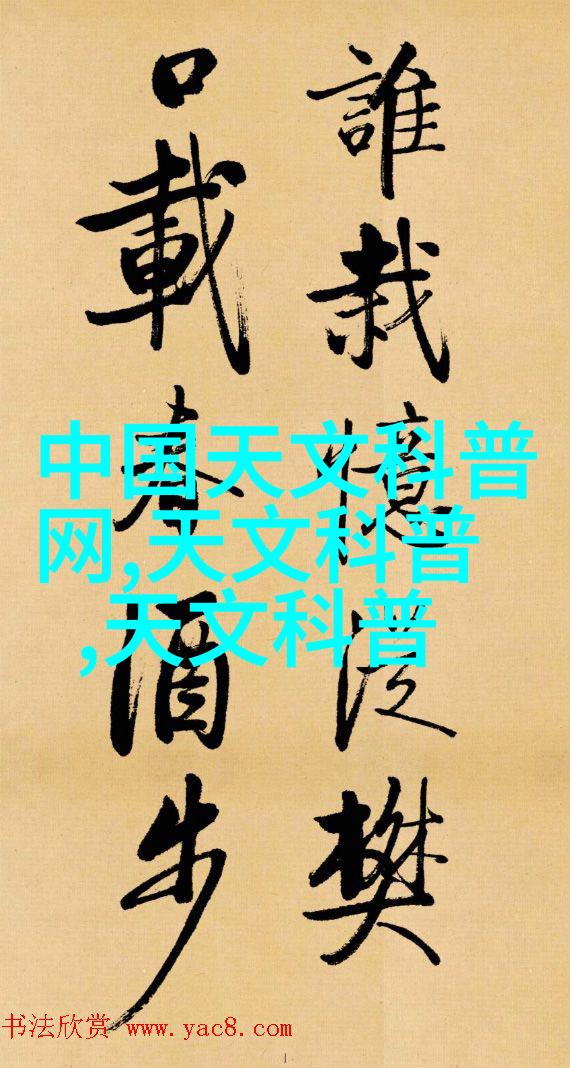 誰栽憶從樊
口載春酒步
中国天文科普
网,天文科普
,天文科普
书法欣赏 www.yac8.com